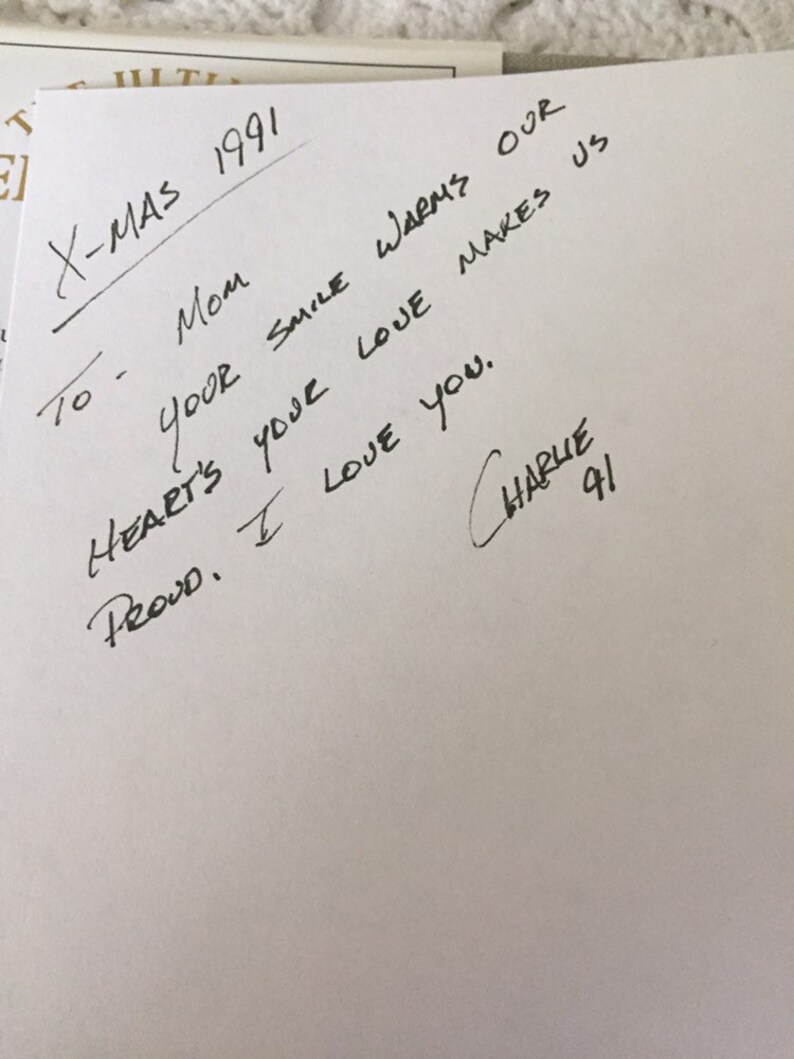 THE ULTI
X-MAS 1991
TO - MOM
YOUR SMILE WARMS OUR
HEART'S YOUR LOVE MAKES US
PROUD. I LOVE YOU.
CHARLIE
91